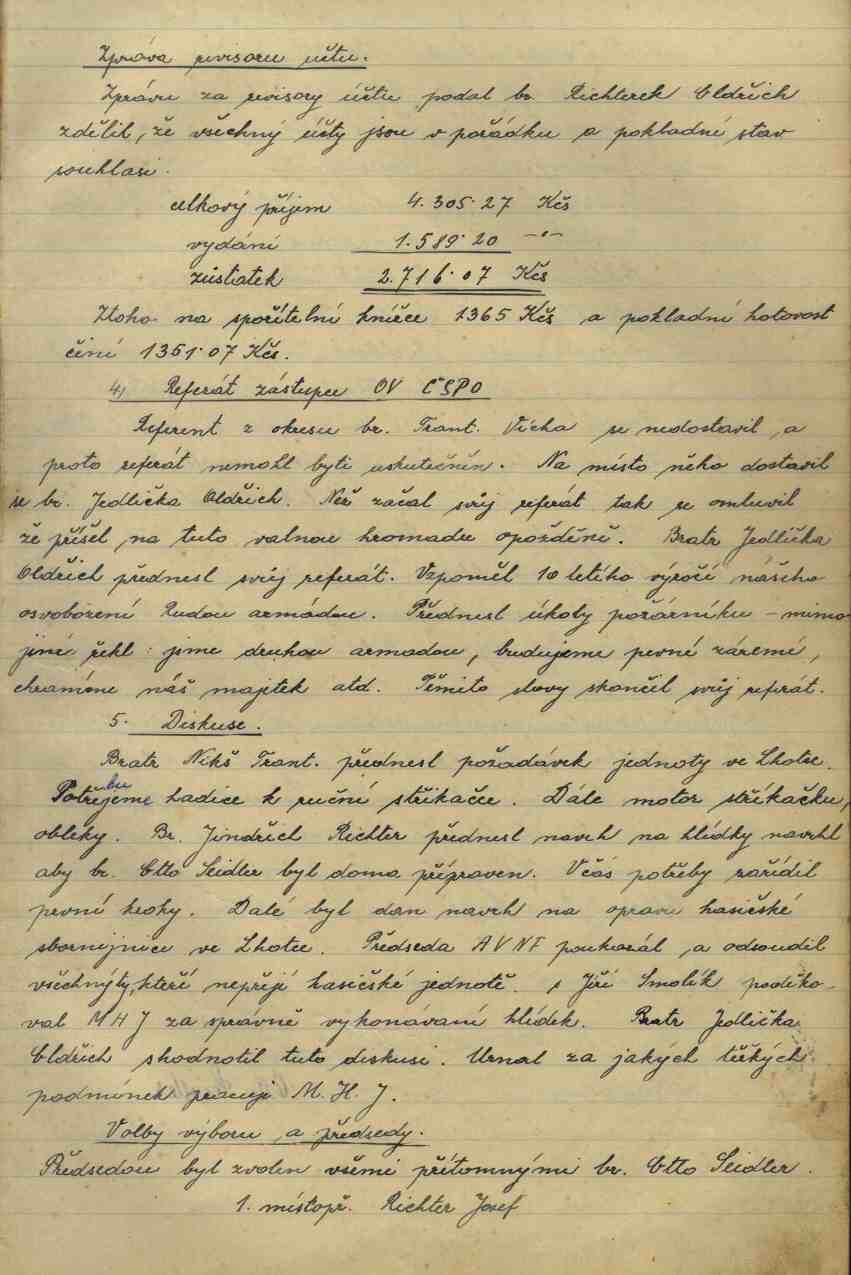 Zpráva revisoru učtu.
Zprávu za revisory účtu podal br. Richterek Oldřich
zdělil, že všechný účty jsou v pořádku a pokladní stav
souhlasi.
celkový příjem 4.305.27 Kčs
vydání 1.589.20 -"-
zůstatek 2.716.07 Kčs
Ztoho na spořitelní knížce 1365 Kčs a pokladní hotovost
činí 1351.07 Kčs.
4, Referát zástupce OV ČSPO
Referent z okresu br. Frant. Vícha se nedostavil, a
proto referát nemohl byti uskutečněn. Na místo něho dostavil
se br. Jedlička Oldřich. Než začal svůj referát tak se omluvil
že přišel na tuto valnou hromadu opožděně. Bratr Jedlička
Oldřich přednesl svůj referát. Vzpoměl 10 letího výročí nášeho
osvobození Rudou armádou. Přednesl úkoly požárníku - mimo
jiné řekl: jsme druhou armadou, budujeme pevné zázemí,
chraníme náš majetek atd. Těmito slovy skončil svůj referát.
5. Diskuse.
Bratr Nikš Frant. přednesl požadávek jednoty ve Lhotce.
Potřebujeme hadice k ruční stříkačce. Dále motor stříkačku,
obleky. Br. Jindřich Richter přednesl navrh na hlídky navrhl
aby br. Otto Seidler byl doma připraven. Včás potřeby zařídil
první kroky. Dalé byl dan navrh na opravu hasičské
sbornijnice ve Lhotce. Předseda AVNF poukázál, a odsoudil
všechnýty, kteří nepřejí hasičské jednotě. s Jiří Smolík poděko-
val MHJ za správně vykonávaní hlídek. Bratr Jedlička
Oldřich shodnotil tuto diskusi. Uznal za jakých těžkých
podmínek pracuji M.H.J.
Volby výboru a předsedy.
Předsedou byl zvolen všemi přítomnými br. Otto Seidler.
1. místopř. Richter Josef